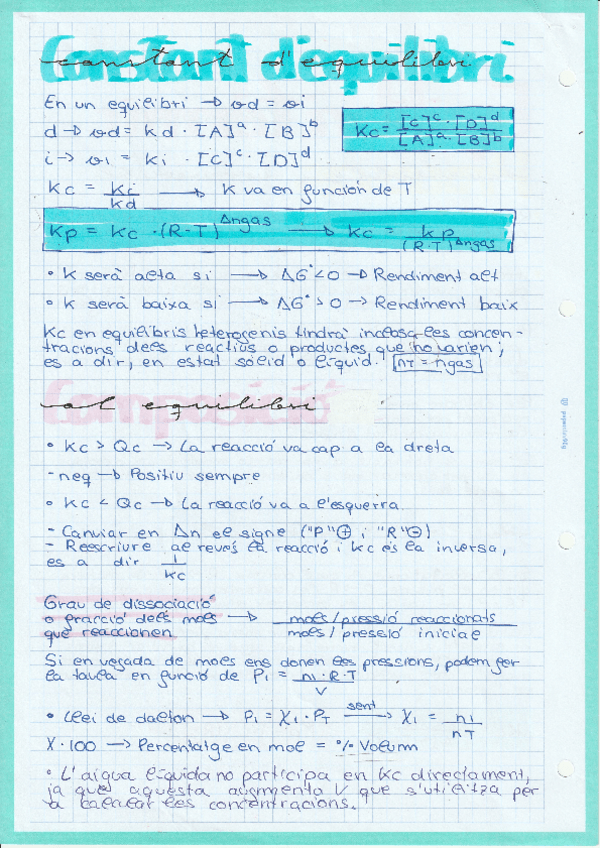 Constant d'equilibri
constant d'equilibri
En un equilibri → vd = vi
d → vd = Kd · [A]^a · [B]^b
Kc = [C]^c · [D]^d / [A]^a · [B]^b
i → vi = Ki · [C]^c · [D]^d
Kc = Ki / Kd → K va en función de T
Kp = Kc · (R·T)^Δngas → Kc = Kp / (R·T)^Δngas
• K serà alta si → ΔG° < 0 → Rendiment alt
• K serà baixa si → ΔG° > 0 → Rendiment baix
Kc en equilibris heterogenis tindrà incloses les concen-
tracions dels reactius o productes que no varien;
es a dir, en estat sòlid o líquid. nT = ngas
Composició
al equilibri
• Kc > Qc → La reacció va cap a la dreta
- neq → Positiu sempre
• Kc < Qc → La reacció va a l'esquerra
- Canviar en Δn el signe ("P"⊕ i "R"⊖)
- Reescriure al revés la reacció i Kc és la inversa,
es a dir 1 / Kc
Grau de dissociació
o fracció dels mols → mols/pressió reaccionats
que reaccionen mols/pressió inicial
Si en vegada de mols ens donen les pressions, podem fer
la taula en funció de Pi = ni · R · T / V
• Llei de dalton → Pi = Xi · PT sent → Xi = ni / nT
X · 100 → Percentatge en mol = % Volum
• L'aigua líquida no participa en Kc directament,
ja que aquesta augmenta V que s'utilitza per
a calcular les concentracions.